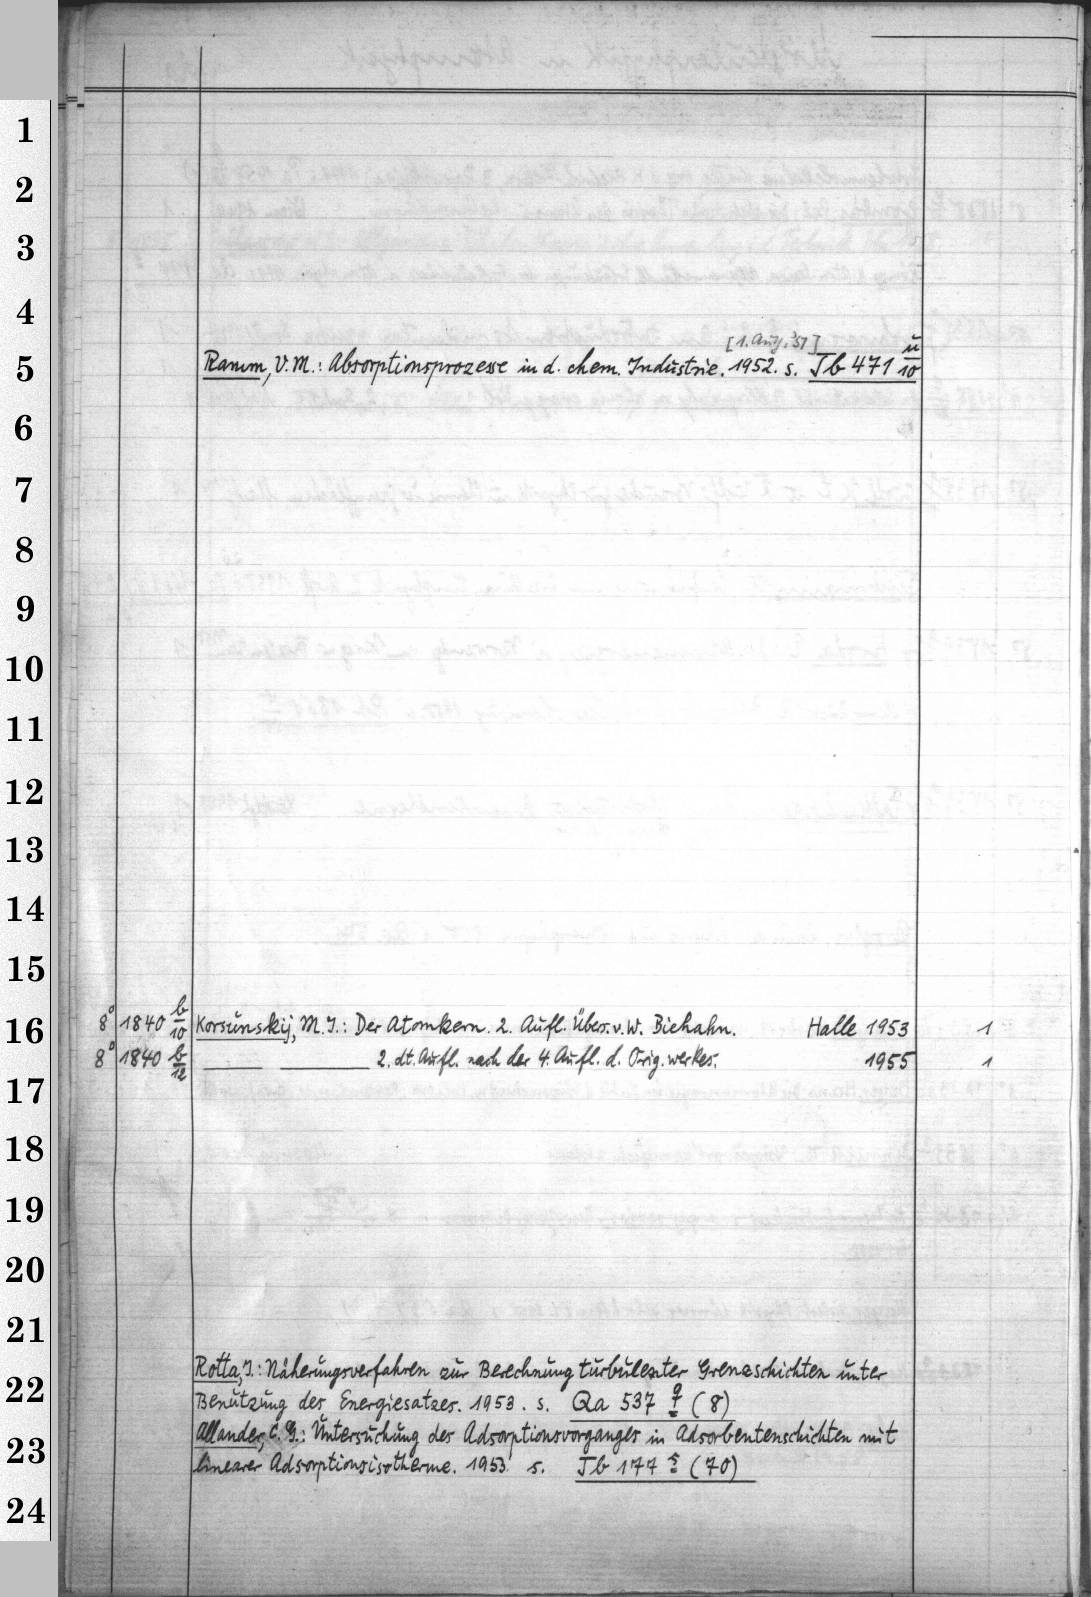 1
2
3
4
[1. Aufl. '51]
5 Ramm, V. M.: Absorptionsprozesse in d. chem. Industrie. 1952. s. Tb 471 u/10
6
7
8
9
10
11
12
13
14
15
16 8° 1840 b/10 Korsunskij, M. I.: Der Atomkern. 2. Aufl. Übers. v. W. Biehahn. Halle 1953 1
8° 1840 b/12 — — 2. dt. Aufl. nach der 4. Aufl. d. Orig. werkes. 1955 1
17
18
19
20
21
Rotta, J.: Näherungsverfahren zur Berechnung turbulenter Grenzschichten unter
22 Benutzung des Energiesatzes. 1953. s. Qa 537 (8)
Allander, C. G.: Untersuchung des Adsorptionsvorganges in Adsorbentenschichten mit
23 linearer Adsorptionsisotherme. 1953. s. Tb 177 (70)
24